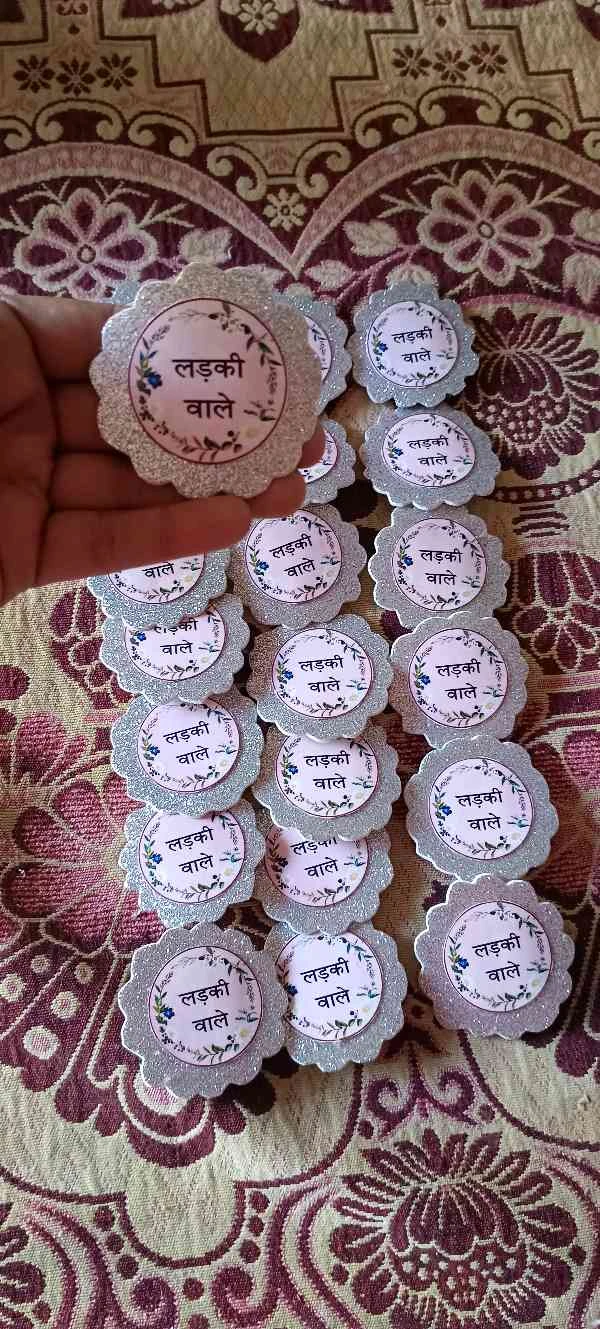 लड़की
वाले
लड़की
वाले
लड़की
वाले
लड़की
वाले
लड़की
वाले
वाले
लड़की
वाले
लड़की
वाले
लड़की
वाले
लड़की
वाले
लड़की
वाले
लड़की
वाले
लड़की
वाले
लड़की
वाले
लड़की
वाले
लड़की
वाले
लड़की
वाले
लड़की
वाले